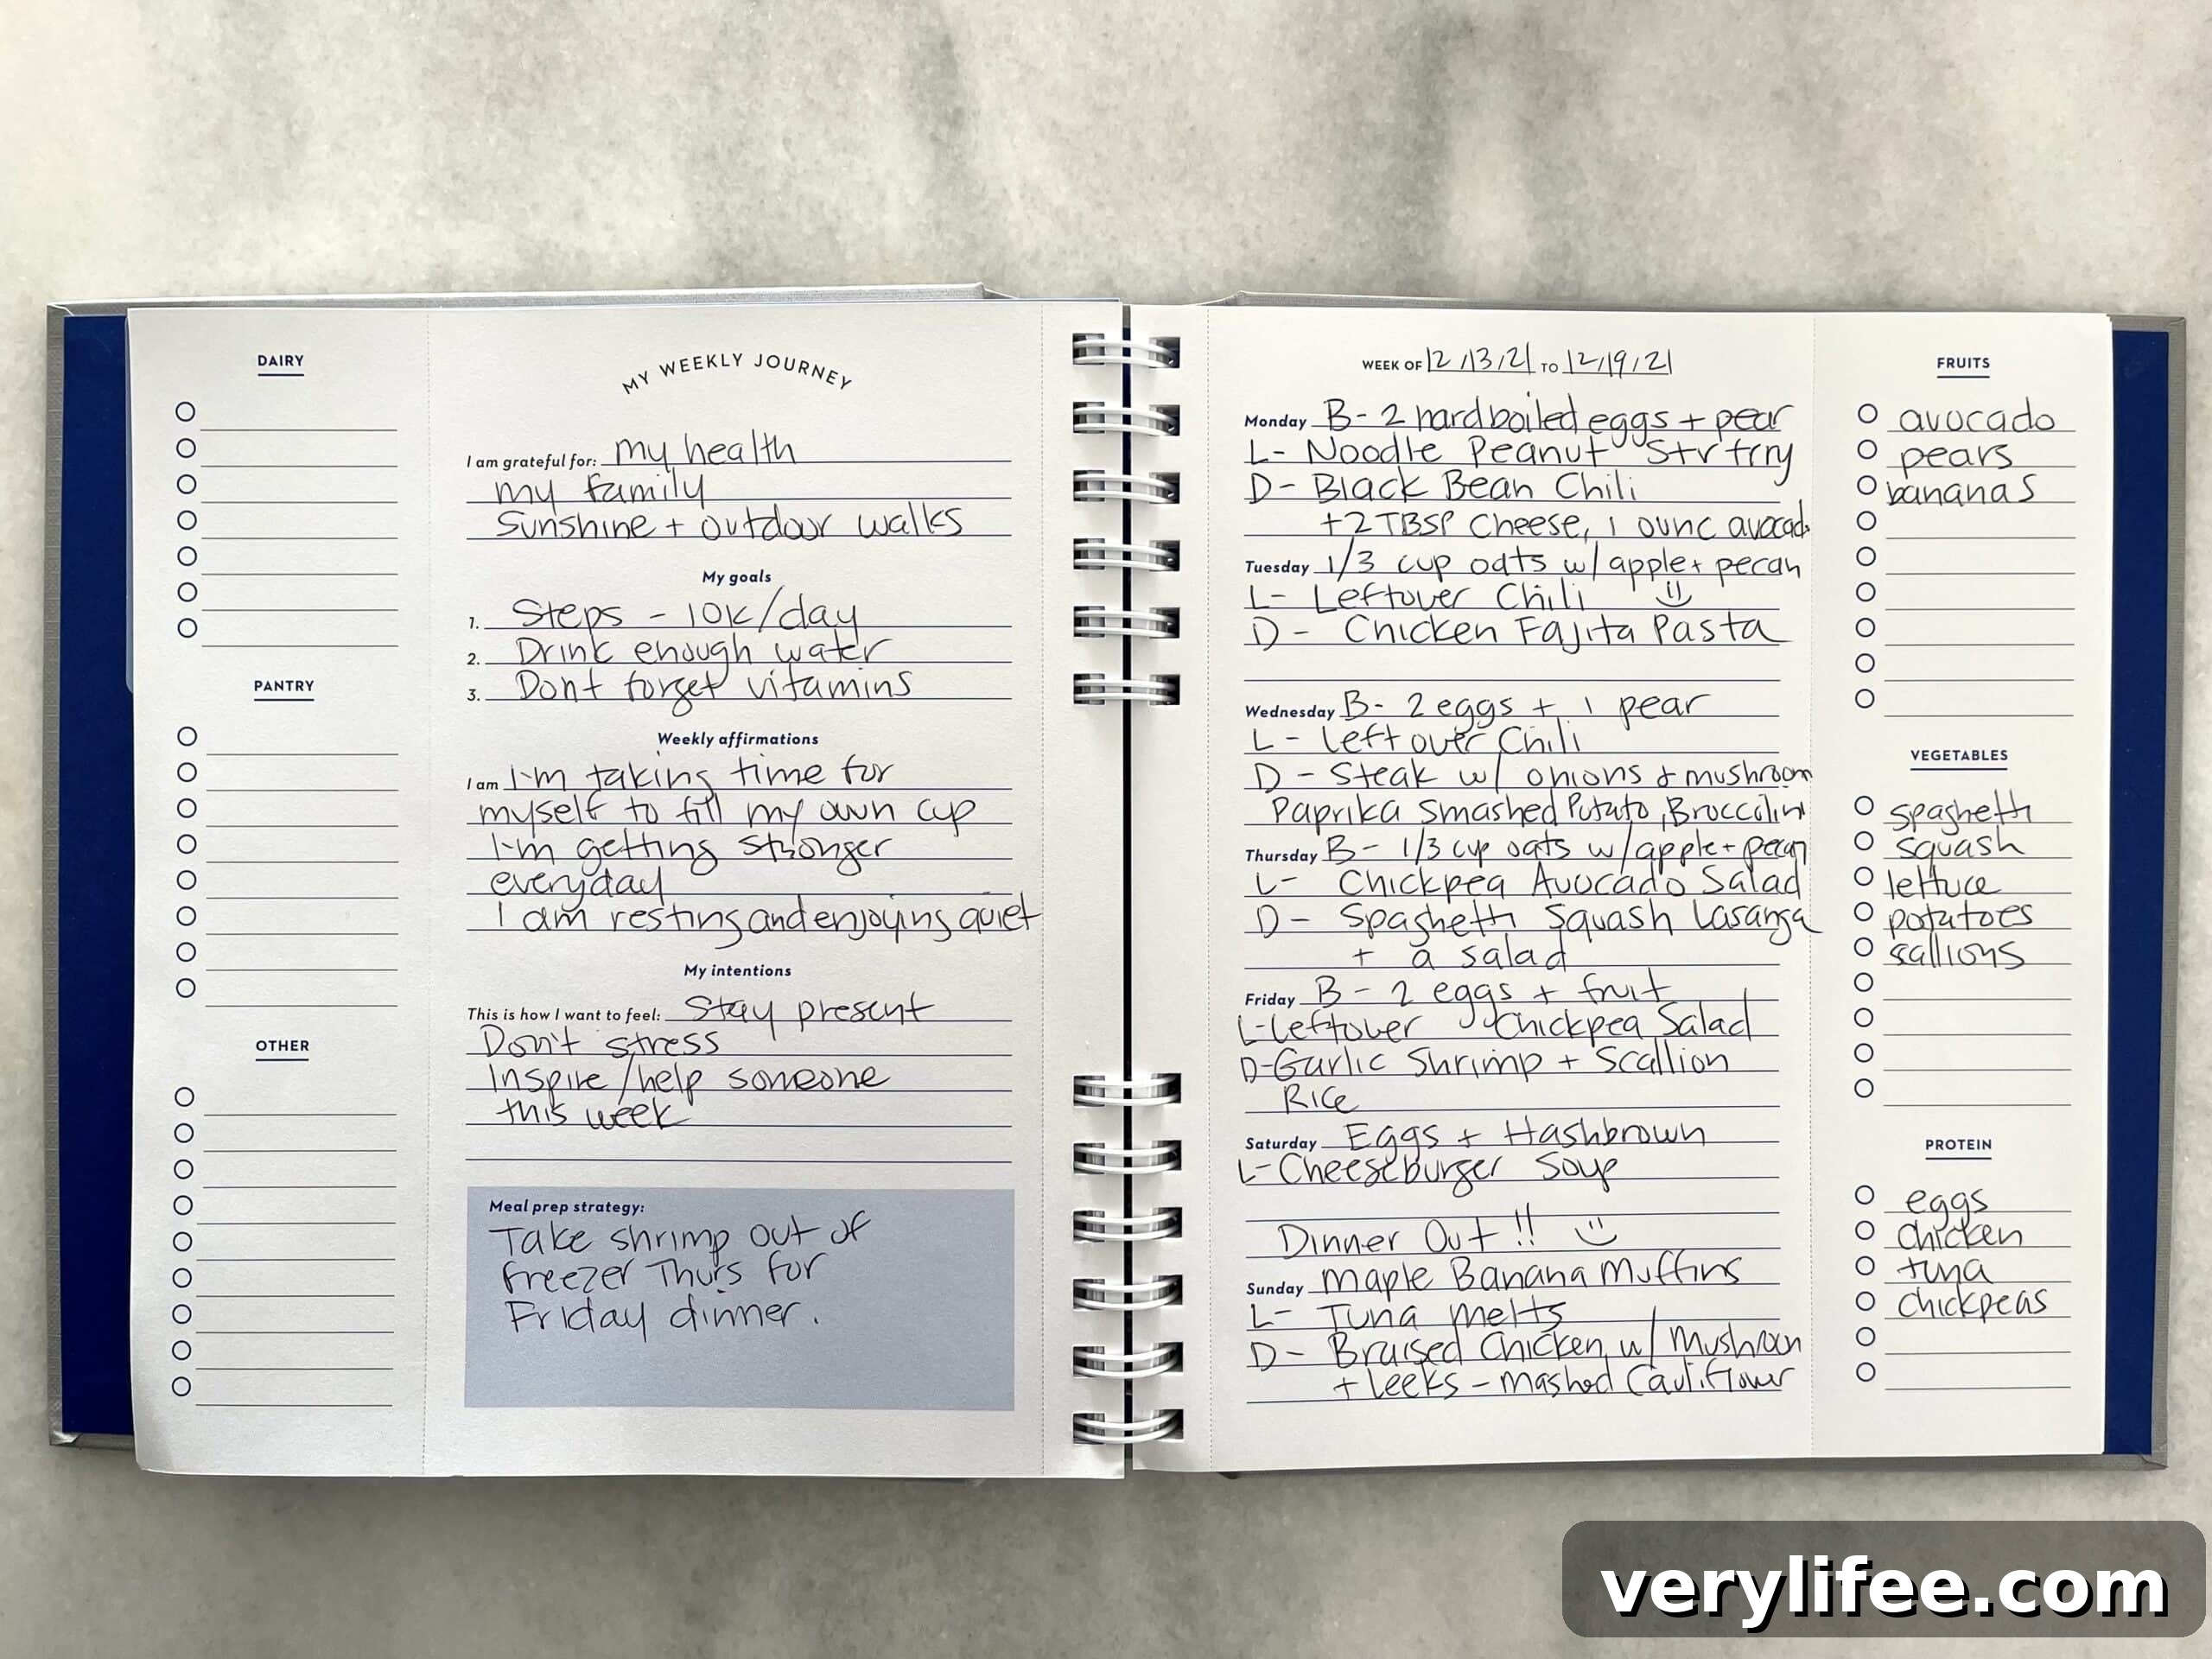 DAIRY
PANTRY
OTHER
MY WEEKLY JOURNEY
I am grateful for: my health
my family
Sunshine + outdoor walks
My goals
1. Steps - 10K/day
2. Drink enough water
3. Dont forget vitamins
Weekly affirmations
I am I'm taking time for
myself to fill my own cup
I'm getting stronger
everyday
I am resting and enjoying quiet
My intentions
This is how I want to feel: Stay present
Don't stress
Inspire/help someone
this week
Meal prep strategy:
Take shrimp out of
freezer Thurs for
Friday dinner.
WEEK OF 12/13/21 TO 12/19/21
Monday B- 2 hardboiled eggs + pear
L- Noodle Peanut Strfry
D- Black Bean Chili
+2 TBSP Cheese, 1 ounc avocado
Tuesday 1/3 cup oats w/ apple + pecan
L- Leftover Chili
D- Chicken Fajita Pasta
Wednesday B- 2 eggs + 1 pear
L- Leftover Chili
D- Steak w/ onions & mushroom
Paprika Smashed Potato, Broccolini
Thursday B- 1/3 cup oats w/ apple + pecan
L- Chickpea Avocado Salad
D- Spaghetti Squash Lasanga
+ a salad
Friday B- 2 eggs + fruit
L- Leftover Chickpea Salad
D- Garlic Shrimp + Scallion
Rice
Saturday Eggs + Hashbrown
L- Cheeseburger Soup
Dinner Out!!
Sunday Maple Banana Muffins
L- Tuna Melts
D- Braised Chicken w/ Mushroom
+ Leeks - Mashed Cauliflower
FRUITS
avocado
pears
bananas
VEGETABLES
spaghetti
squash
lettuce
potatoes
sallions
PROTEIN
eggs
chicken
tuna
chickpeas
verylifee.com